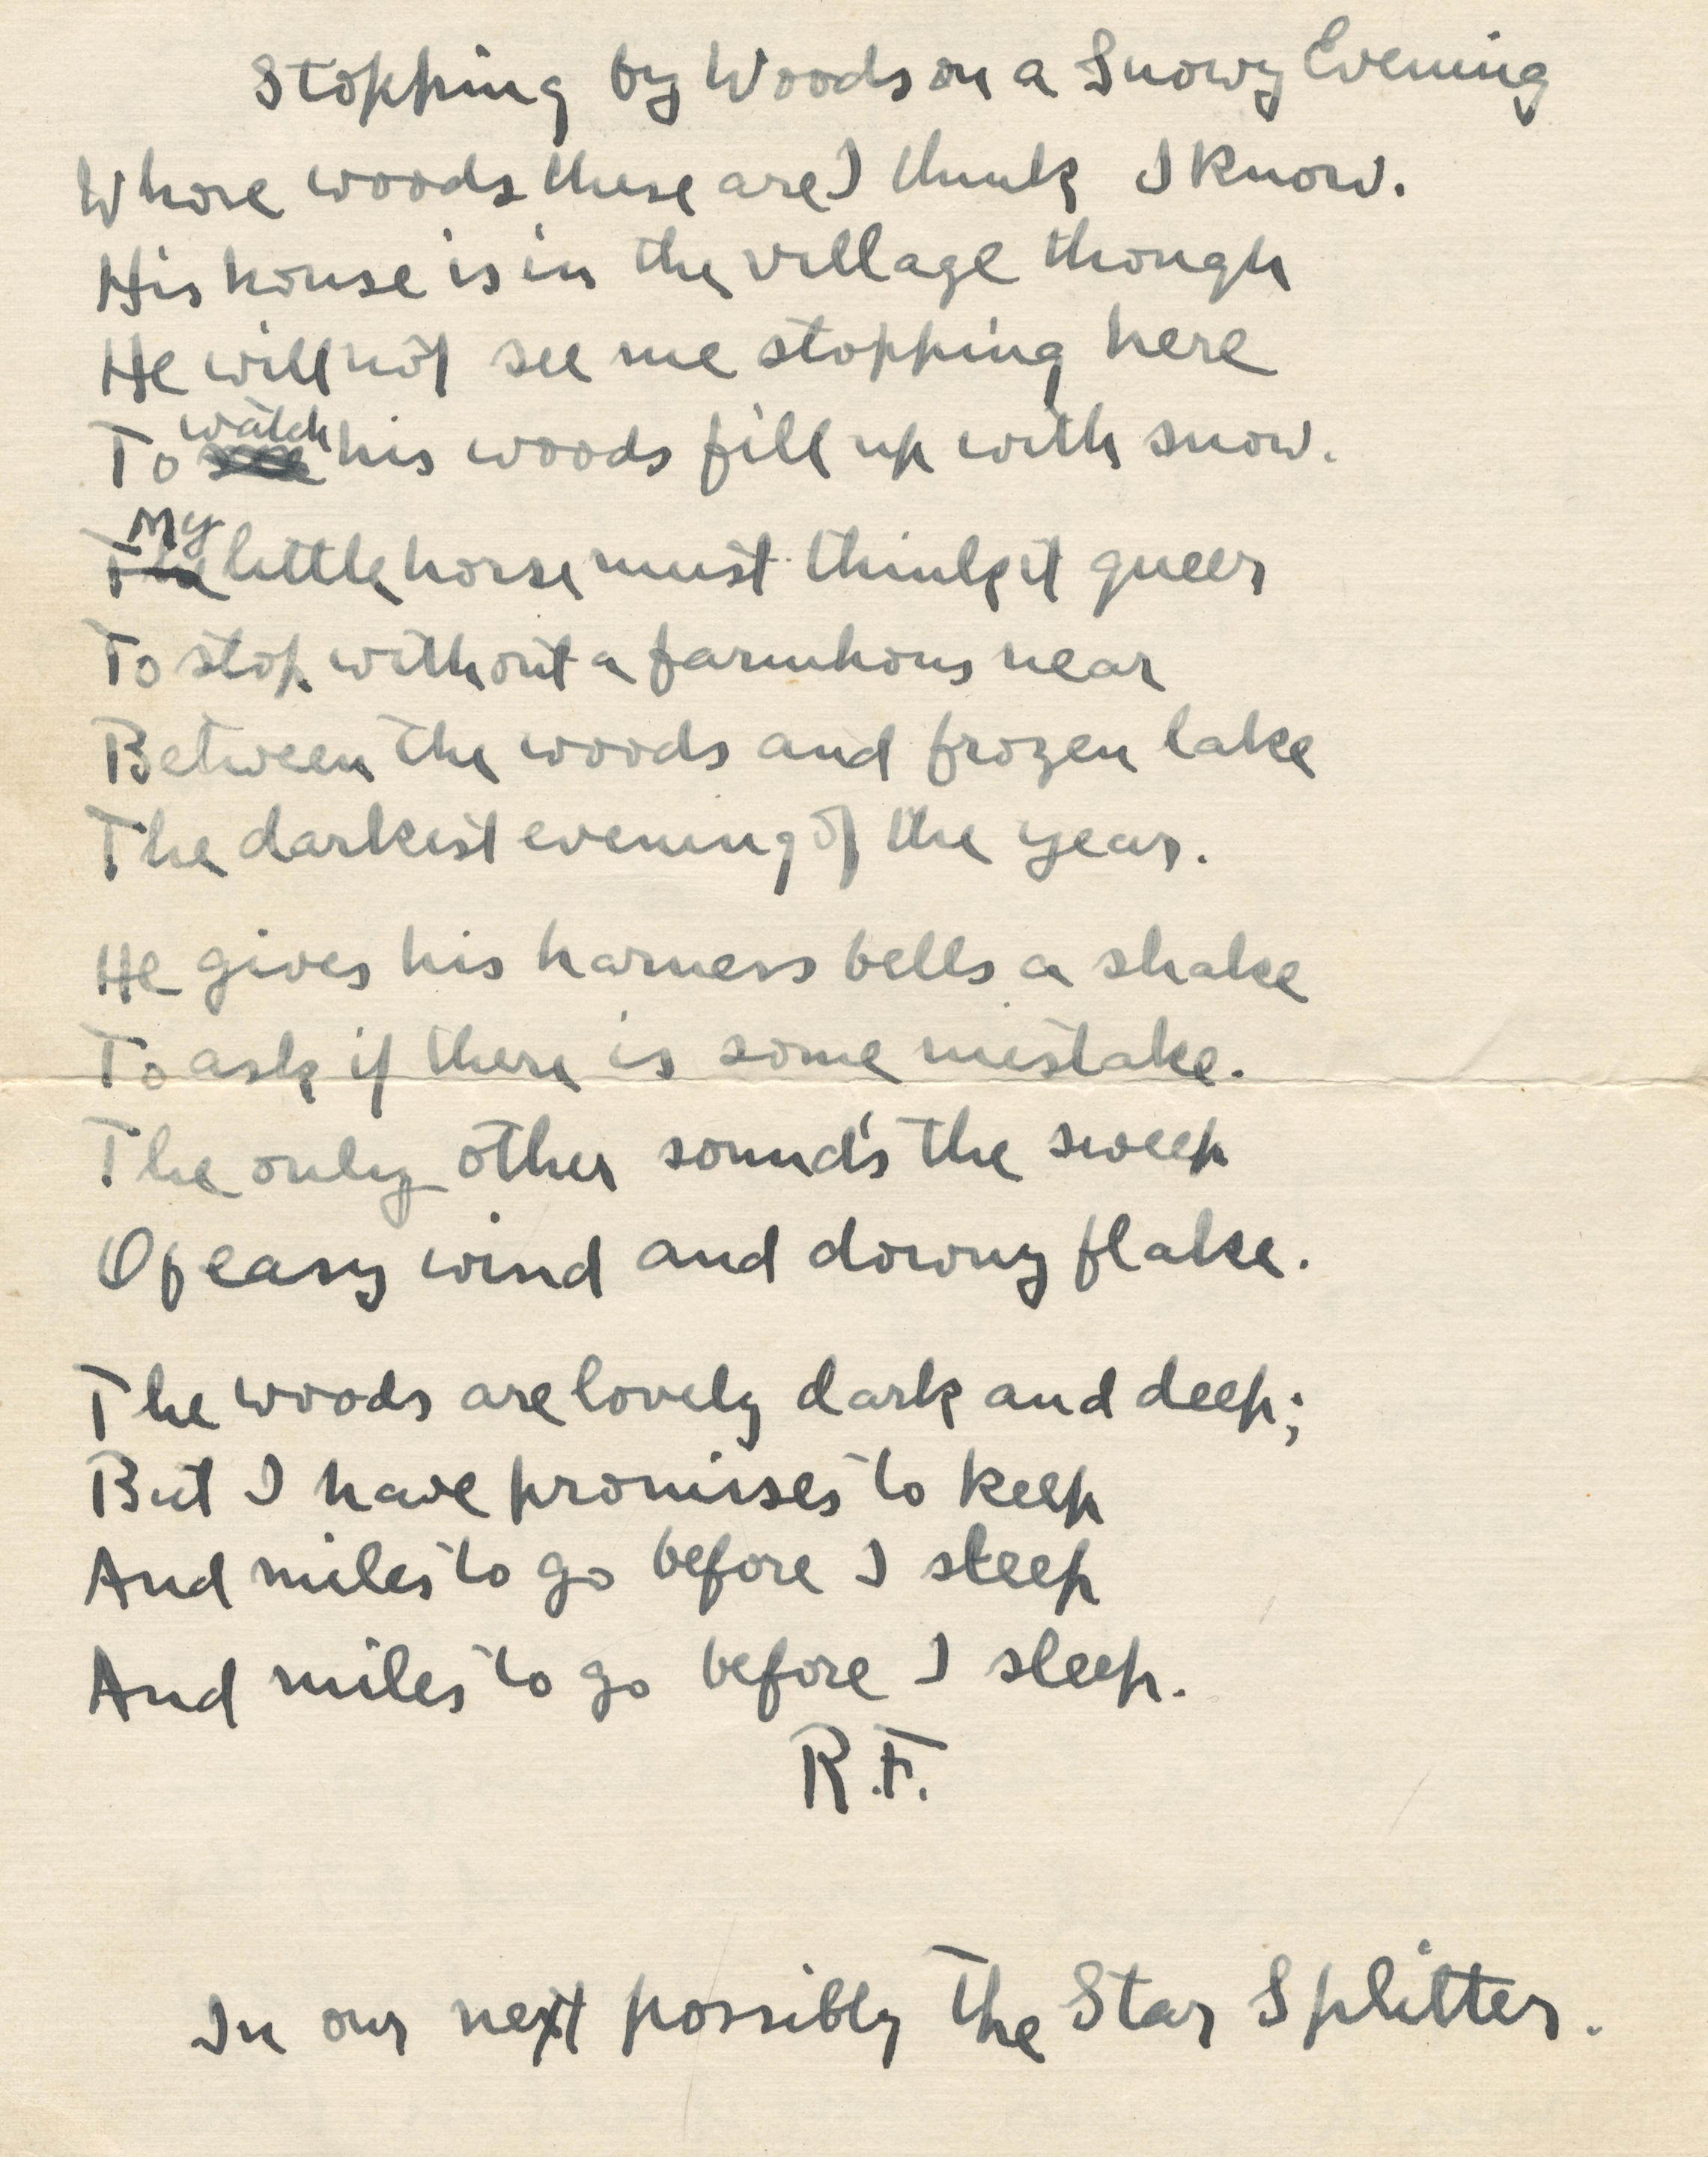 Stopping by Woods on a Snowy Evening
Whose woods these are I think I know.
His house is in the village though
He will not see me stopping here
To see watch his woods fill up with snow.
The My little horse must think it queer
To stop without a farmhous near
Between the woods and frozen lake
The darkest evening of the year.
He gives his harness bells a shake
To ask if there is some mistake.
The only other sound's the sweep
Of easy wind and downy flake.
The woods are lovely dark and deep;
But I have promises to keep
And miles to go before I sleep
And miles to go before I sleep.
R.F.
In our next possibly The Star Splitter.